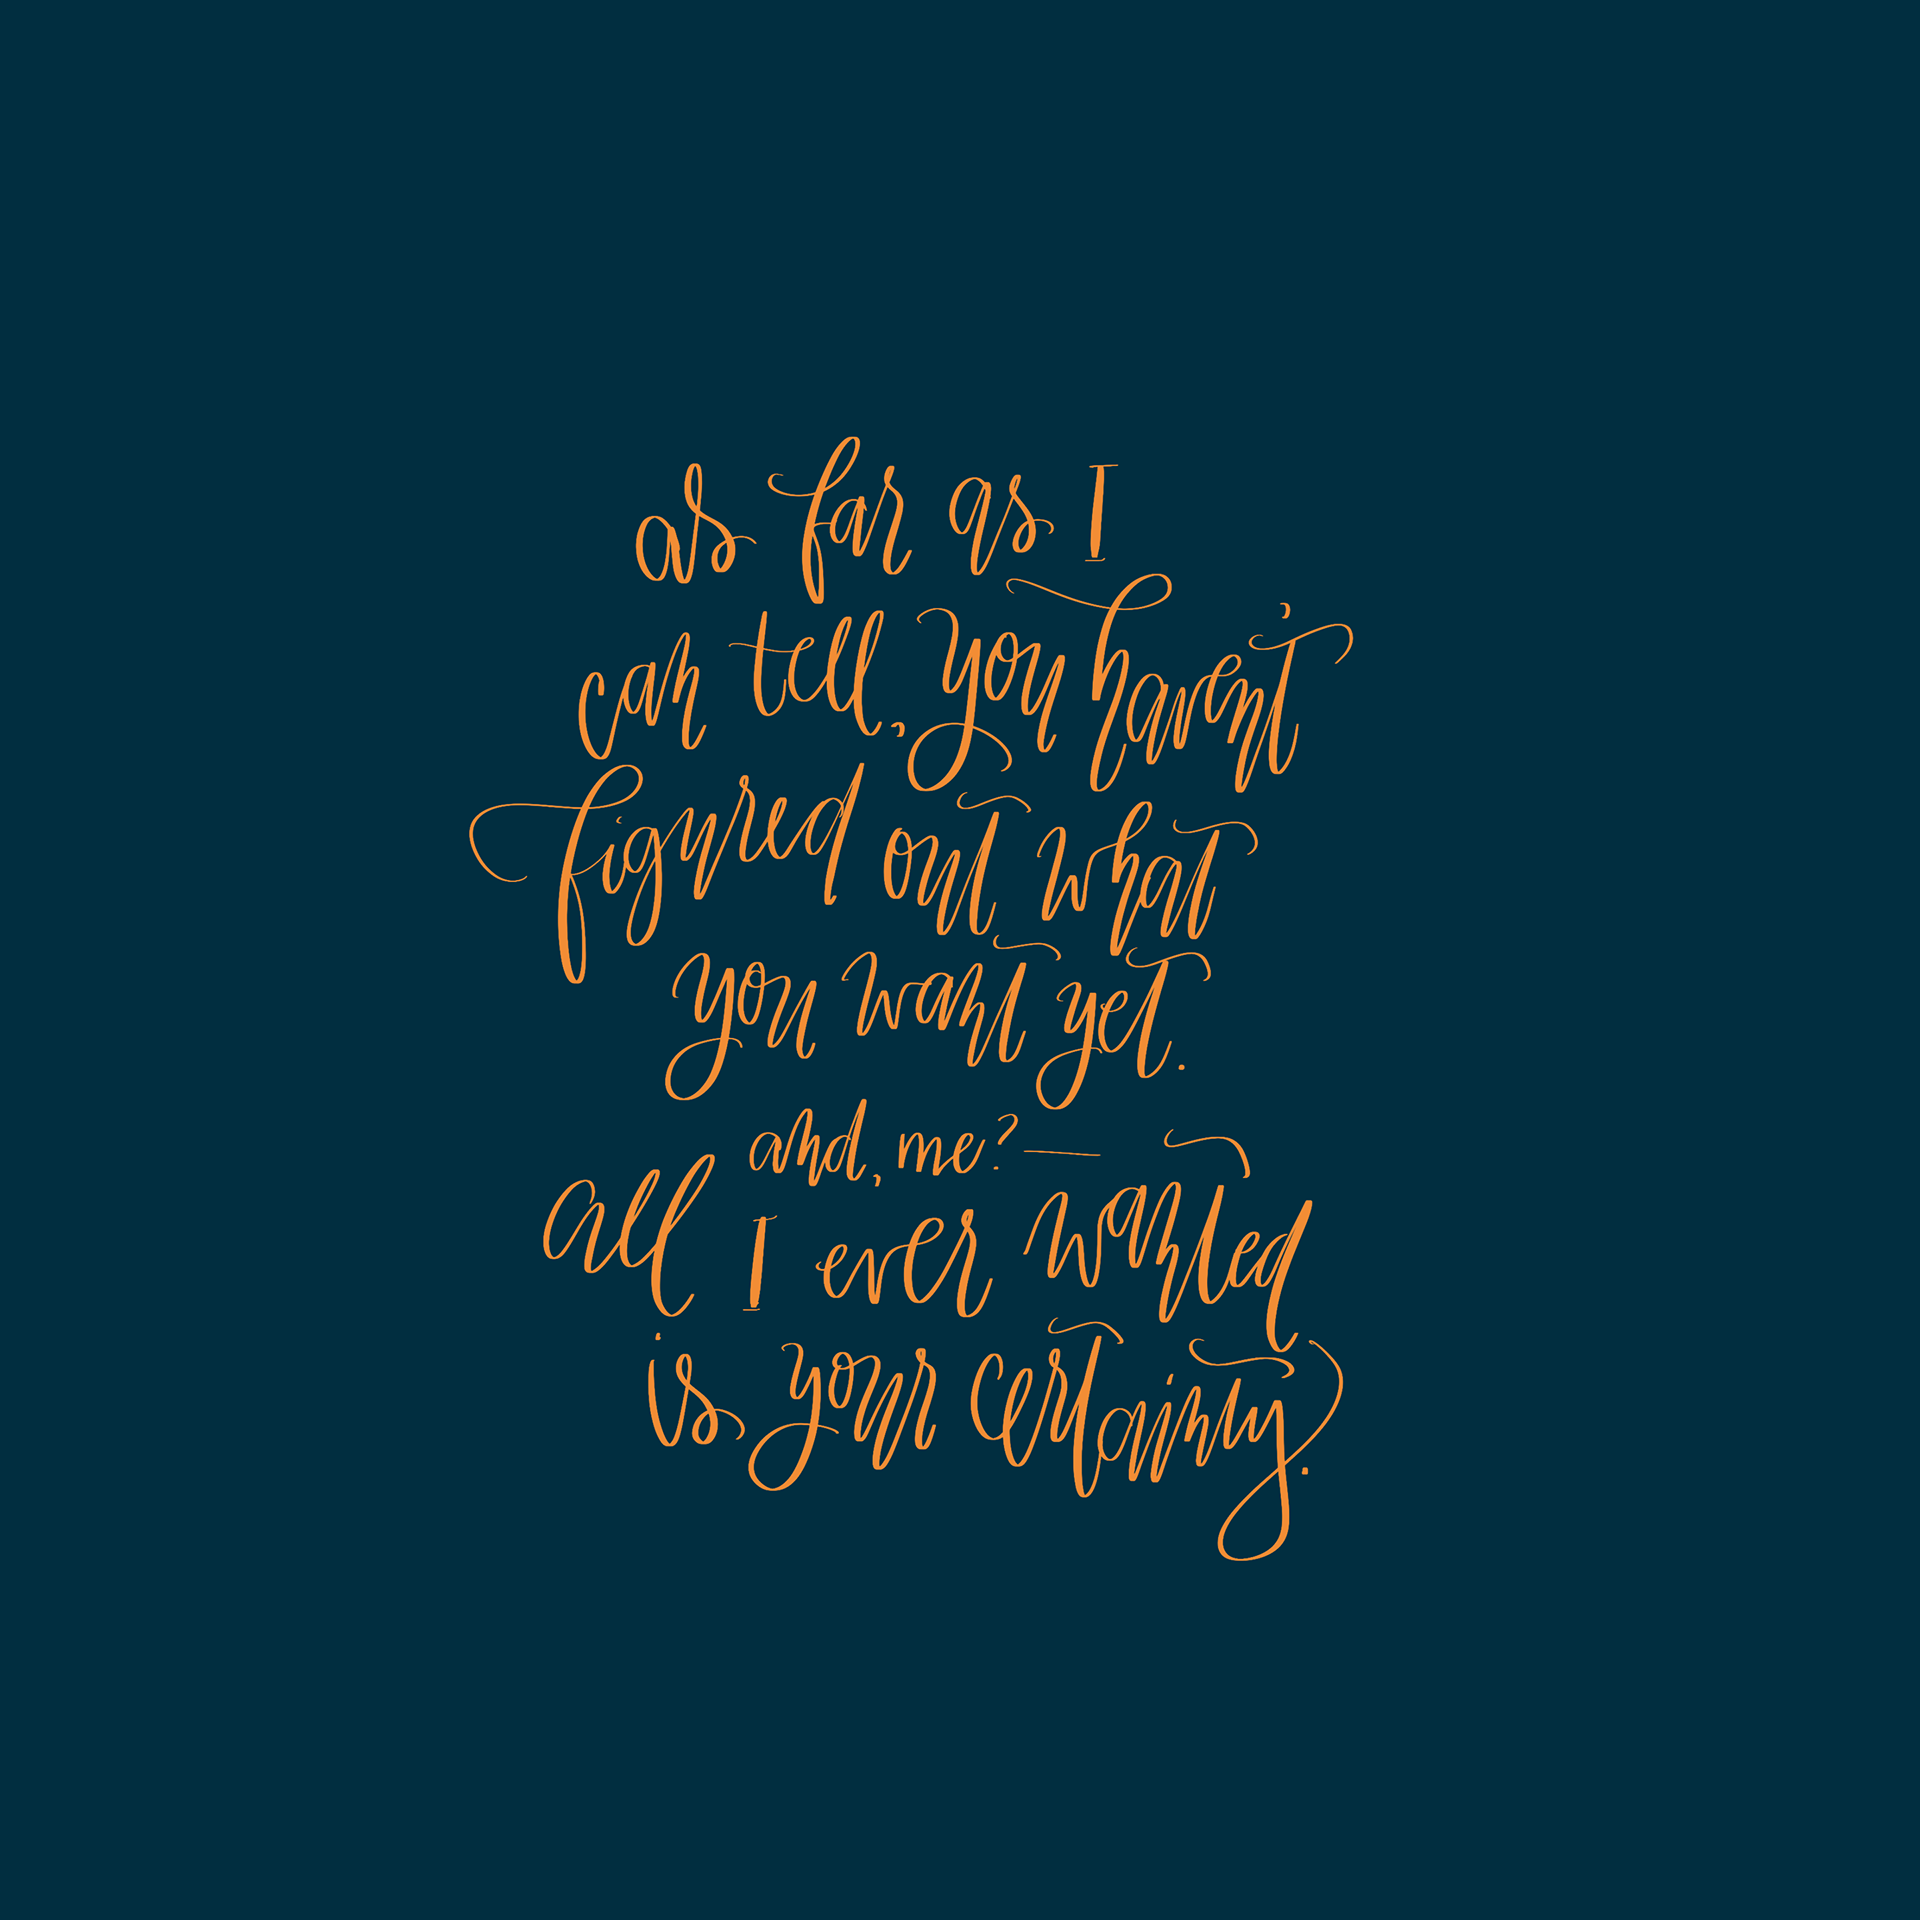 as far as I
can tell, you haven't
figured out what
you want yet.
and, me? —
all I ever wanted
is your certainty.